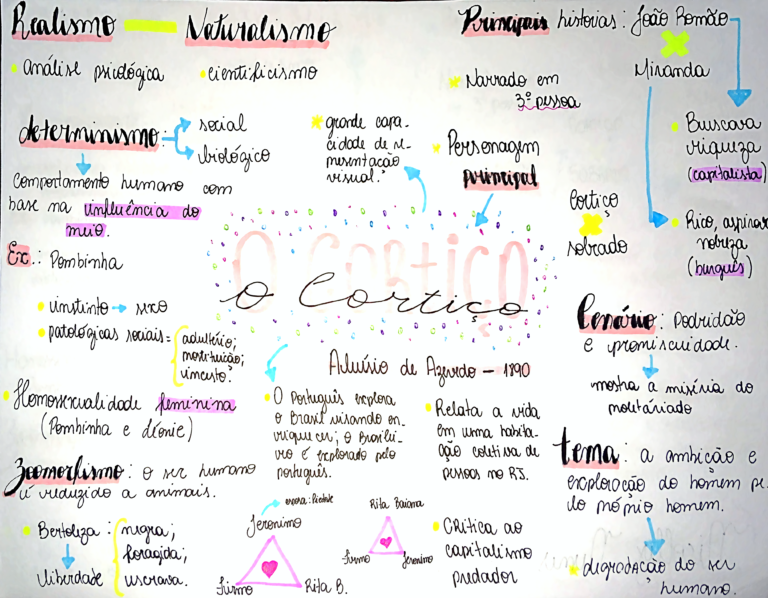 Realismo — Naturalismo
• análise psicológica
• cientificismo
determinismo:
social
biológico
comportamento humano com
base na influência do
meio.
Ex.: Pombinha
• instinto → sexo
• patológicas sociais =
adultério;
prostituição;
incesto.
• Homossexualidade feminina
(Pombinha e Léonie)
Zoomorfismo: o ser humano
é reduzido a animais.
• Bertoleza:
negra;
foragida;
escrava.
liberdade
grande capa-
cidade de re-
presentação
visual.
Principais histórias: João Romão
Miranda
Narrado em
3ª pessoa
Personagem
principal
• Buscava
riqueza
(capitalista)
• Rico, aspirar
nobreza
(burguês)
Cortiço
sobrado
O CORTIÇO
O Cortiço
Aluísio de Azevedo — 1890
• O Português explora
o Brasil visando en-
riquecer; o brasilei-
ro é explorado pelo
português.
• Relata a vida
em uma habita-
ção coletiva de
pessoas no RJ.
• CRítica ao
capitalismo
predador
Jeronimo
Firmo
Rita B.
Rita Baiana
Firmo
Jeronimo
Cenário: Podridão
e promiscuidade.
mostra a miséria do
proletáriado
tema: a ambição e
exploração do homem pe-
lo próprio homem.
degradação do ser
humano.